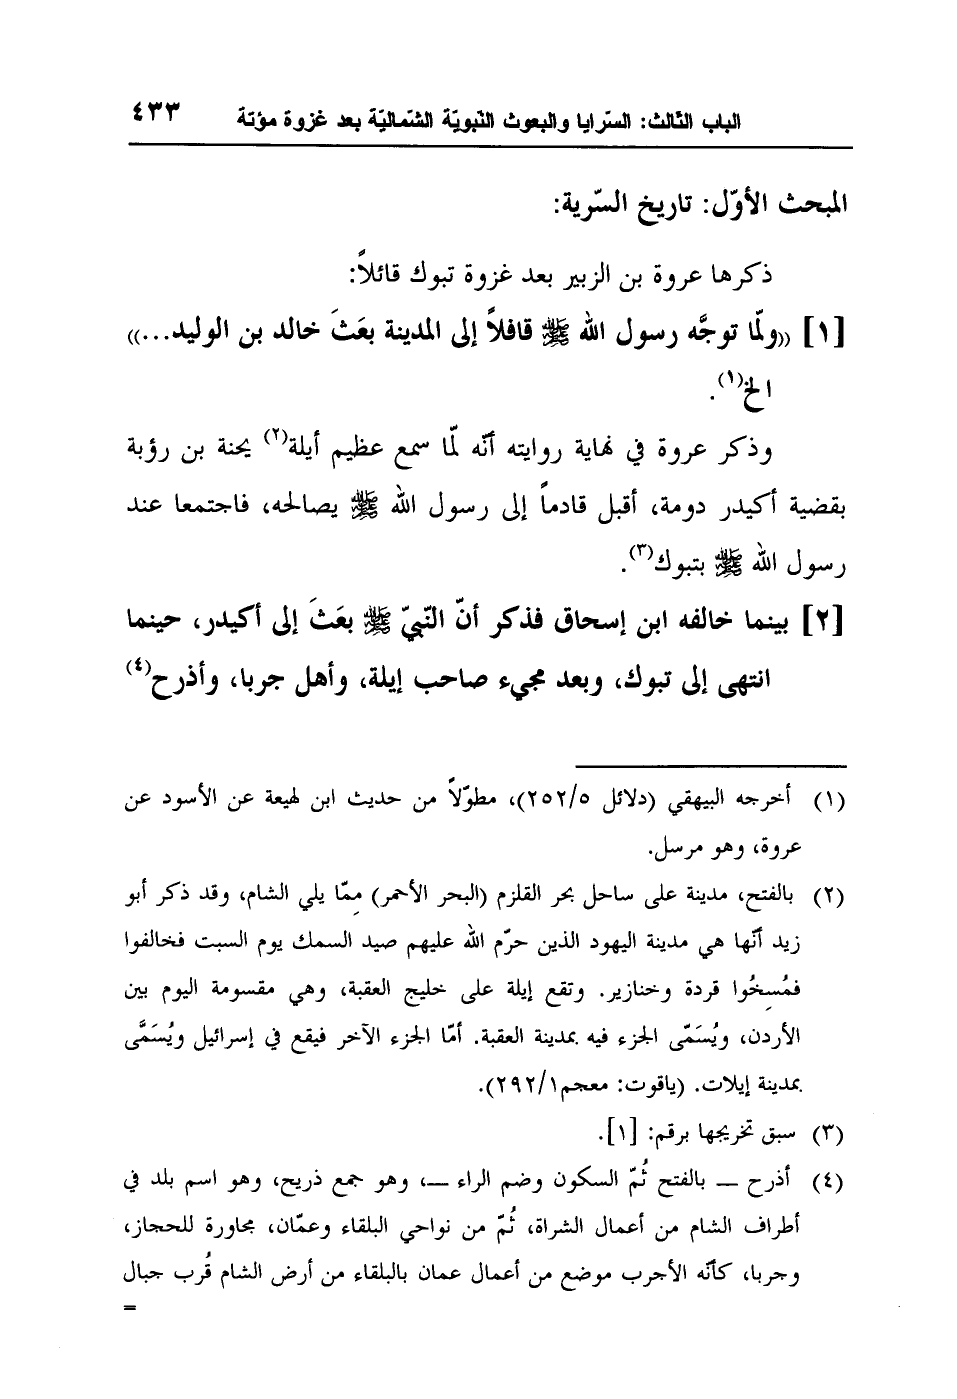 الباب الثّالث: السّرايا والبعوث النّبويّة الشّماليّة بعد غزوة مؤتة ٤٣٣
المبحث الأوّل: تاريخ السّرية:
ذكرها عروة بن الزبير بعد غزوة تبوك قائلاً:
[١] ((ولمّا توجَّه رسول الله ﷺ قافلاً إلى المدينة بعَثَ خالد بن الوليد...))
الخ(١).
وذكر عروة في نهاية روايته أنّه لمّا سمع عظيم أيلة(٢) يحنة بن رؤبة
بقضية أكيدر دومة، أقبل قادماً إلى رسول الله ﷺ يصالحه، فاجتمعا عند
رسول الله ﷺ بتبوك(٣).
[٢] بينما خالفه ابن إسحاق فذكر أنّ النّبيّ ﷺ بعَثَ إلى أكيدر، حينما
انتهى إلى تبوك، وبعد مجيء صاحب إيلة، وأهل جربا، وأذرح(٤)
(١) أخرجه البيهقي (دلائل ٢٥٢/٥)، مطوّلاً من حديث ابن لهيعة عن الأسود عن
عروة، وهو مرسل.
(٢) بالفتح، مدينة على ساحل بحر القلزم (البحر الأحمر) ممّا يلي الشام، وقد ذكر أبو
زيد أنّها هي مدينة اليهود الذين حرّم الله عليهم صيد السمك يوم السبت فخالفوا
فمُسِخُوا قردة وخنازير. وتقع إيلة على خليج العقبة، وهي مقسومة اليوم بين
الأردن، ويُسَمّى الجزء فيه بمدينة العقبة. أمّا الجزء الآخر فيقع في إسرائيل ويُسَمَّى
بمدينة إيلات. (ياقوت: معجم٢٩٢/١).
(٣) سبق تخريجها برقم: [١].
(٤) أذرح ـــ بالفتح ثُمّ السكون وضم الراء ـــ، وهو جمع ذريح، وهو اسم بلد في
أطراف الشام من أعمال الشراة، ثُمّ من نواحي البلقاء وعمّان، مجاورة للحجاز،
وجربا، كأنّه الأجرب موضع من أعمال عمان بالبلقاء من أرض الشام قُرب جبال
=